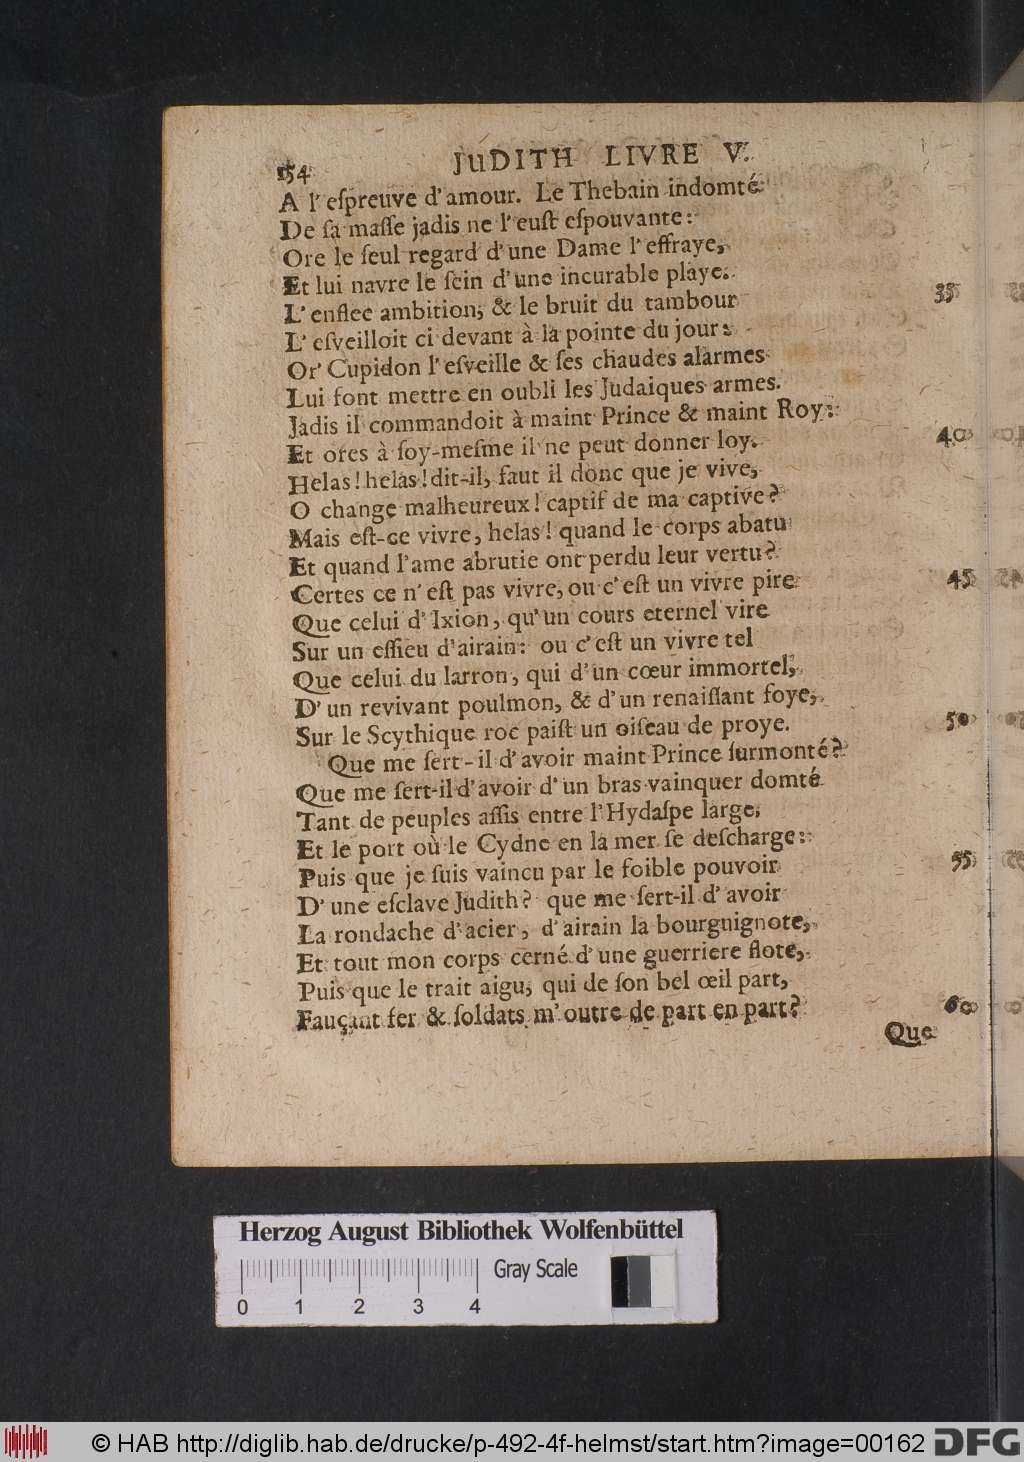 154 JuDITH LIVRE V.
A l'eſpreuve d'amour. Le Thebain indomté
De ſa maſſe jadis ne l'euſt eſpouvante:
Ore le ſeul regard d'une Dame l'effraye,
Et lui navre le ſein d'une incurable playe.
L'enflee ambition, & le bruit du tambour
35
L'eſveilloit ci devant à la pointe du jour:
Or' Cupidon l'eſveille & ſes chaudes alarmes
Lui font mettre en oubli les Judaiques armes.
Jadis il commandoit à maint Prince & maint Roy:
Et ores à ſoy-meſme il ne peut donner loy.
40
Helas! helas! dit-il, faut il donc que je vive,
O change malheureux! captif de ma captive?
Mais eſt-ce vivre, helas! quand le corps abatu
Et quand l'ame abrutie ont perdu leur vertu?
Certes ce n'eſt pas vivre, ou c'eſt un vivre pire
45
Que celui d'Ixion, qu'un cours eternel vire
Sur un eſſieu d'airain: ou c'eſt un vivre tel
Que celui du larron, qui d'un cœur immortel,
D'un revivant poulmon, & d'un renaiſſant foye,
Sur le Scythique roc paiſt un oiſeau de proye.
50
Que me ſert-il d'avoir maint Prince ſurmonté?
Que me ſert-il d'avoir d'un bras vainquer domté
Tant de peuples aſſis entre l'Hydaſpe large,
Et le port où le Cydne en la mer ſe deſcharge:
Puis que je ſuis vaincu par le foible pouvoir
55
D'une eſclave Judith? que me ſert-il d'avoir
La rondache d'acier, d'airain la bourguignote,
Et tout mon corps cerné d'une guerriere flote,
Puis que le trait aigu, qui de ſon bel œil part,
Fauçant fer & ſoldats m'outre de part en part?
60
Que
Herzog August Bibliothek Wolfenbüttel
Gray Scale
0 1 2 3 4
© HAB http://diglib.hab.de/drucke/p-492-4f-helmst/start.htm?image=00162 DFG